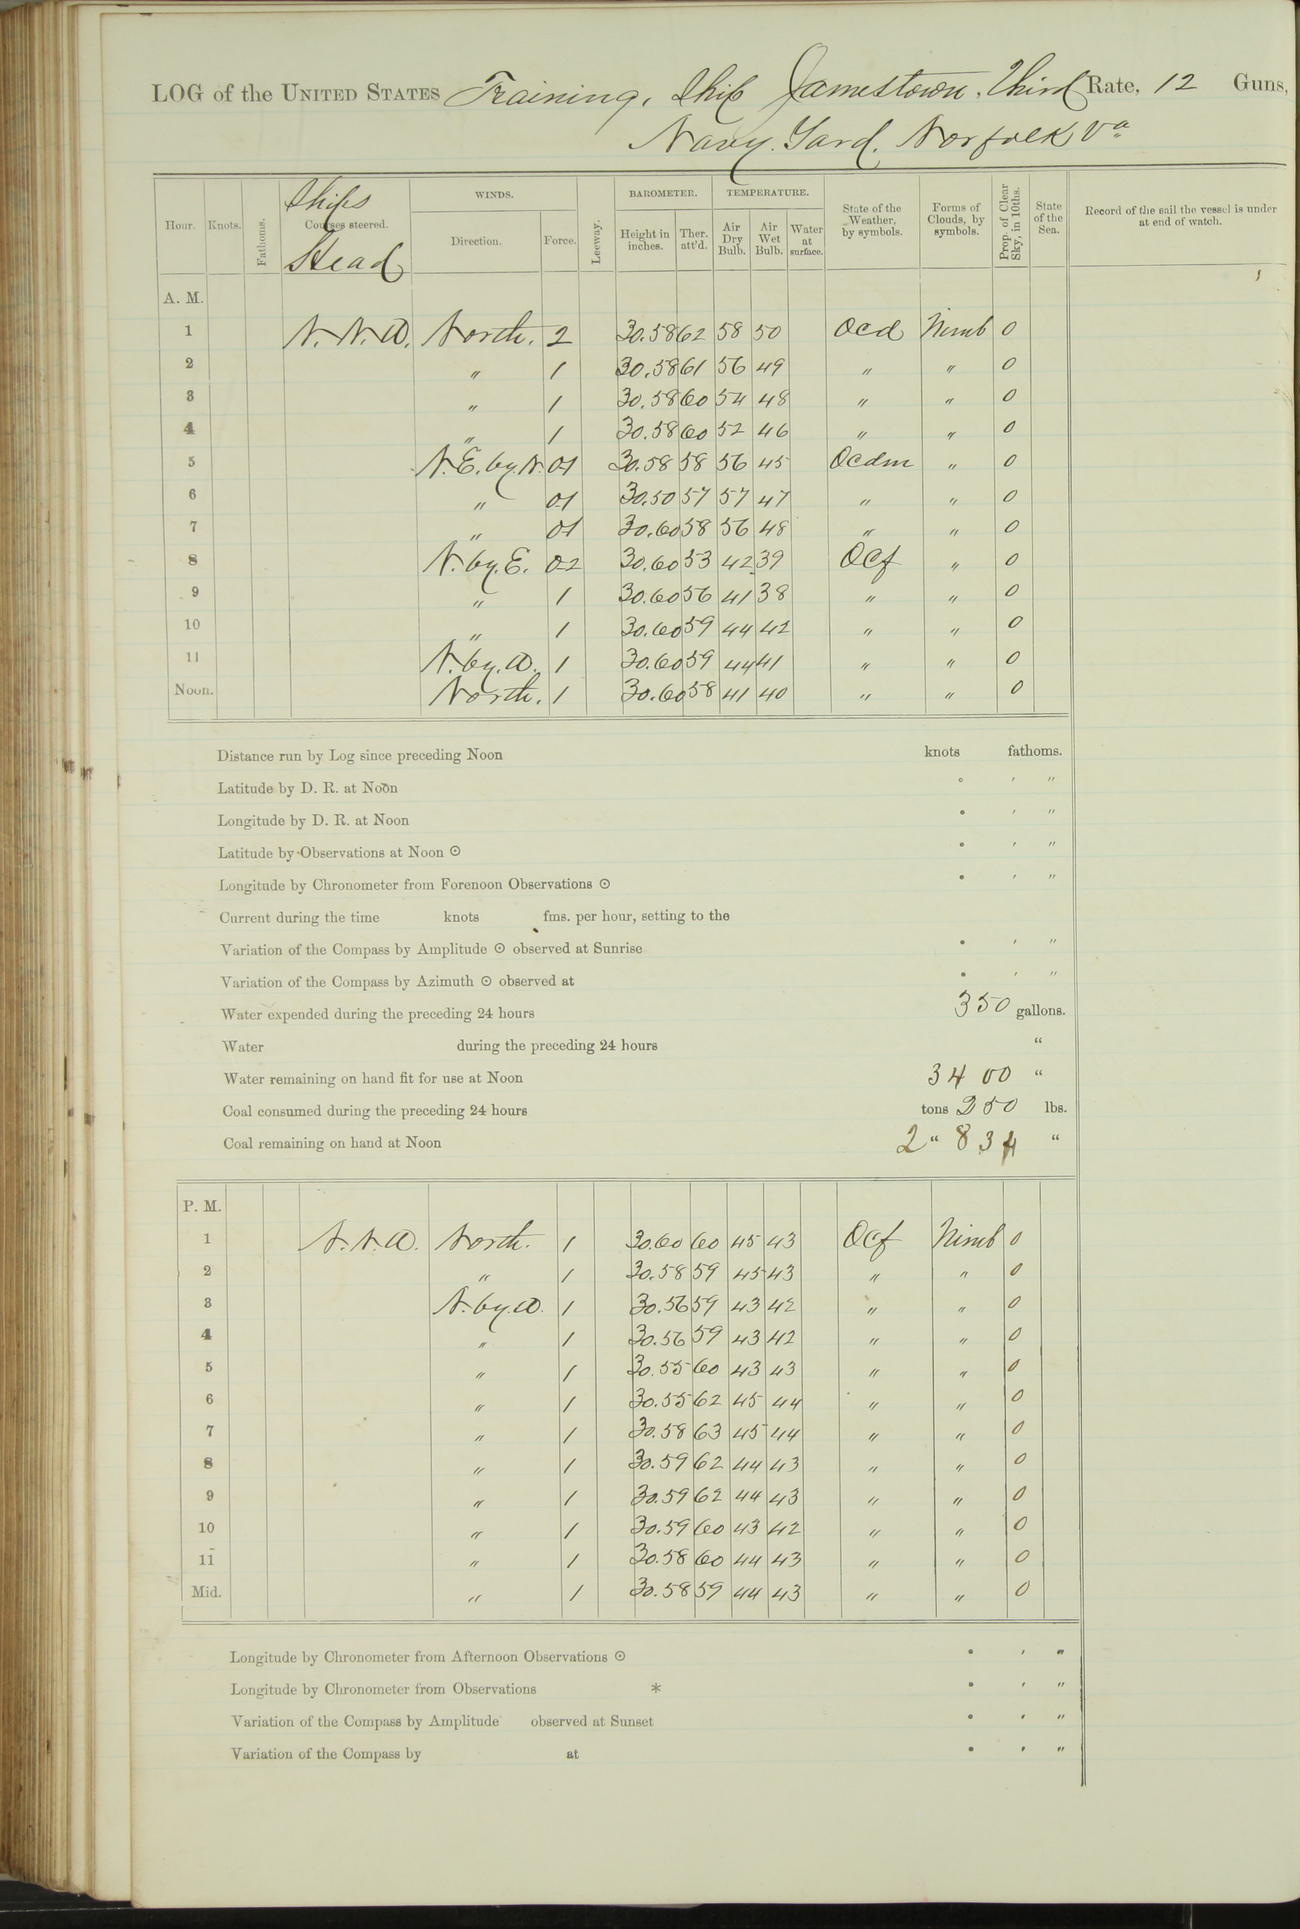 LOG of the UNITED STATES Training Ship Jamestown, Third Rate, 12 Guns,
Navy Yard, Norfolk Va
Hour. Knots. Fathoms. Ships Courses steered. Head WINDS. Direction. Force. Leeway. BAROMETER. Height in inches. Ther. att'd. TEMPERATURE. Air Dry Bulb. Air Wet Bulb. Water at surface. State of the Weather, by symbols. Forms of Clouds, by symbols. Prop. of Clear Sky, in 10ths. State of the Sea. Record of the sail the vessel is under at end of watch.
A. M.
1 N.N.W. North. 2 30.58 62 58 50 Ocd Nimb 0
2 " 1 30.58 61 56 49 " " 0
3 " 1 30.58 60 54 48 " " 0
4 " 1 30.58 60 52 46 " " 0
5 N.E. by N. 01 30.58 58 56 45 Ocdm " 0
6 " 01 30.50 57 57 47 " " 0
7 " 01 30.60 58 56 48 " " 0
8 N. by E. 02 30.60 53 42 39 Ocf " 0
9 " 1 30.60 56 41 38 " " 0
10 " 1 30.60 59 44 42 " " 0
11 N. by W. 1 30.60 59 44 41 " " 0
Noon. North. 1 30.60 58 41 40 " " 0
Distance run by Log since preceding Noon knots fathoms.
Latitude by D. R. at Noon ° ' "
Longitude by D. R. at Noon ° ' "
Latitude by Observations at Noon ☉ ° ' "
Longitude by Chronometer from Forenoon Observations ☉ ° ' "
Current during the time knots fms. per hour, setting to the
Variation of the Compass by Amplitude ☉ observed at Sunrise ° ' "
Variation of the Compass by Azimuth ☉ observed at ° ' "
Water expended during the preceding 24 hours 350 gallons.
Water during the preceding 24 hours "
Water remaining on hand fit for use at Noon 3400 "
Coal consumed during the preceding 24 hours tons 250 lbs.
Coal remaining on hand at Noon 2 " 834 "
P. M.
1 N.N.W. North. 1 30.60 60 45 43 Ocf Nimb 0
2 " 1 30.58 59 45 43 " " 0
3 N. by W. 1 30.56 59 43 42 " " 0
4 " 1 30.56 59 43 42 " " 0
5 " 1 30.55 60 43 43 " " 0
6 " 1 30.55 62 45 44 " " 0
7 " 1 30.58 63 45 44 " " 0
8 " 1 30.59 62 44 43 " " 0
9 " 1 30.59 62 44 43 " " 0
10 " 1 30.59 60 43 42 " " 0
11 " 1 30.58 60 44 43 " " 0
Mid. " 1 30.58 59 44 43 " " 0
Longitude by Chronometer from Afternoon Observations ☉ ° ' "
Longitude by Chronometer from Observations * ° ' "
Variation of the Compass by Amplitude observed at Sunset ° ' "
Variation of the Compass by at ° ' "